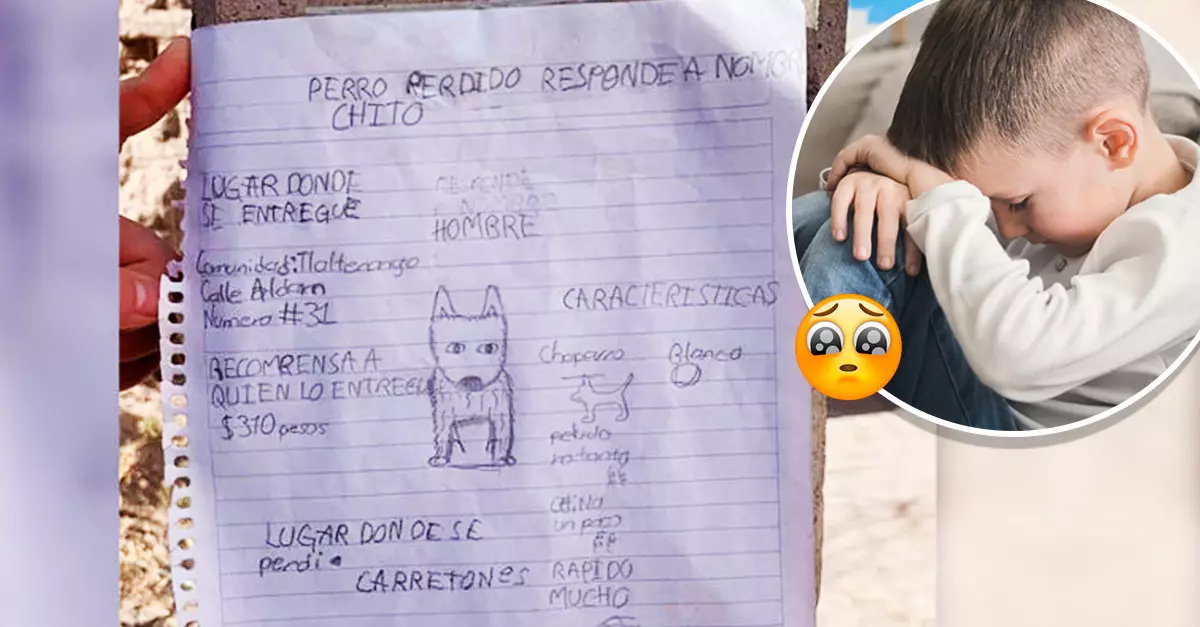 PERRO PERDIDO RESPONDE A NOMBR
CHITO
LUGAR DONDE
SE ENTREGUE
RESPONDE
NOMBRE
HOMBRE
Comunidad: Tlaltenango
Calle Aldam
Numero #31
RECOMPRENSA A
QUIEN LO ENTREGUE
$370 pesos
CARACTERISTICAS
Chaparro Blanco
un poco
RAPIDO
MUCHO
LUGAR DONDE SE
perdio
CARRETONES